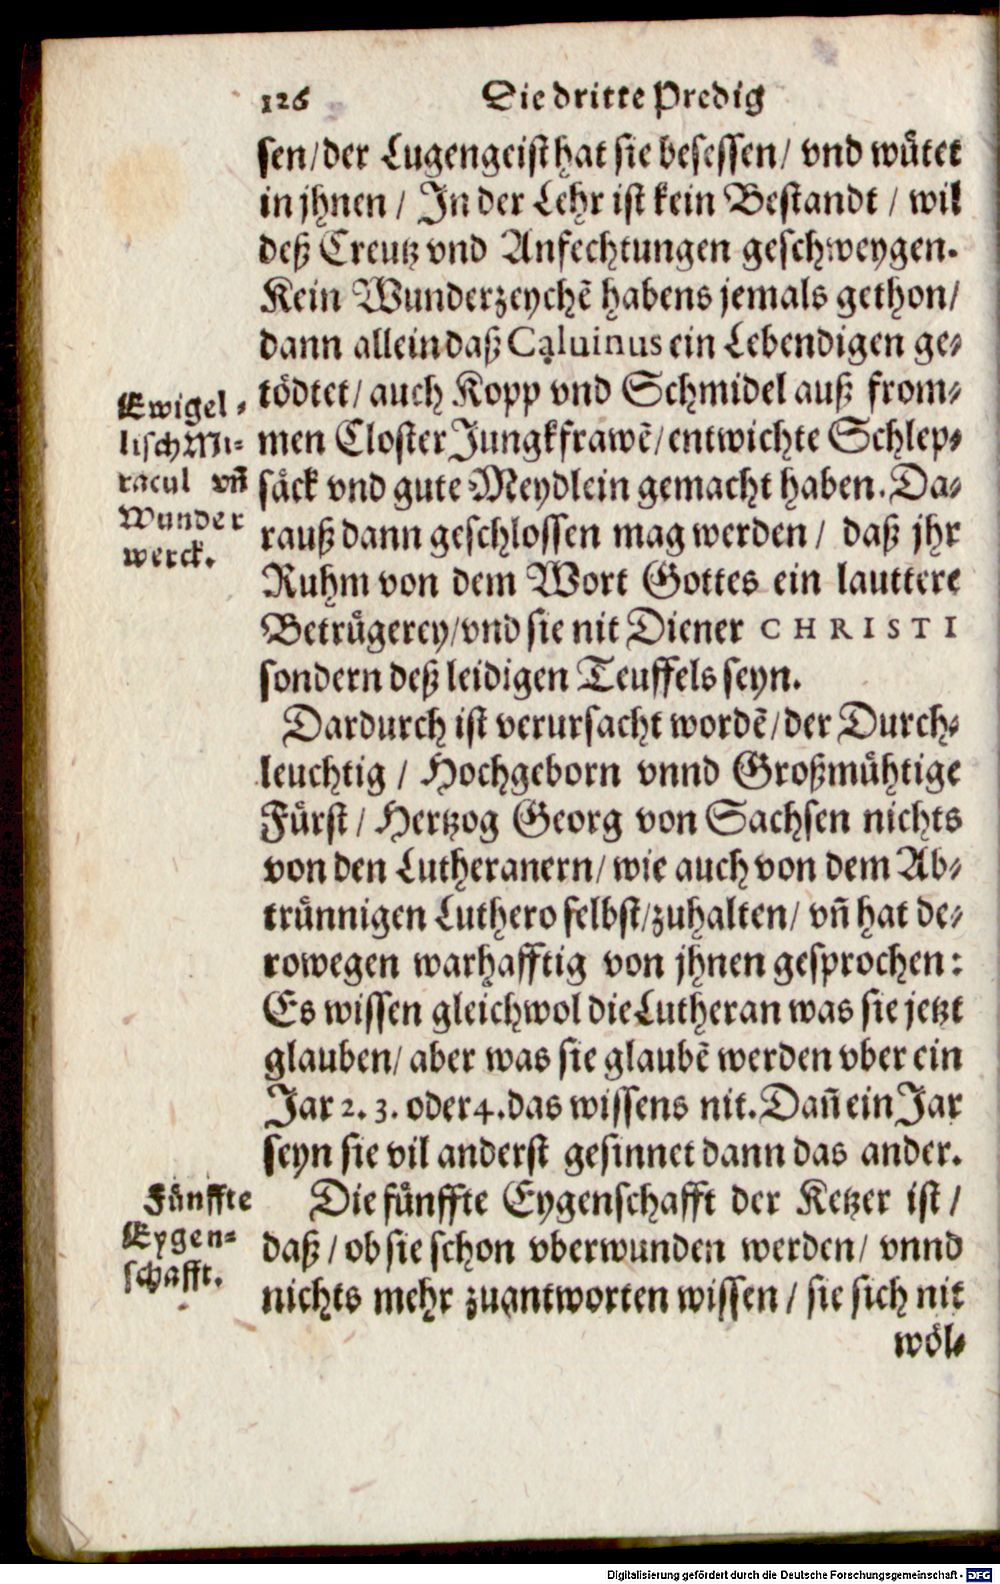 126 Die dritte Predig
sen/der Lugengeist hat sie besessen/ vnd wůtet
in jhnen / In der Lehr ist kein Bestandt / wil
deß Creutz vnd Anfechtungen geschweygen.
Kein Wunderzeychẽ habens jemals gethon/
dann allein daß Caluinus ein Lebendigen ge-
tödtet/ auch Kopp vnd Schmidel auß from-
men Closter Jungkfrawẽ/entwichte Schlep-
säck vnd gute Meydlein gemacht haben. Da-
rauß dann geschlossen mag werden / daß jhr
Ruhm von dem Wort Gottes ein lauttere
Betrůgerey/vnd sie nit Diener CHRISTI
sondern deß leidigen Teuffels seyn.
Ewigel-
lisch Mi-
racul vñ
Wunder
werck.
Dardurch ist verursacht wordẽ/der Durch-
leuchtig / Hochgeborn vnnd Großmühtige
Fůrst / Hertzog Georg von Sachsen nichts
von den Lutheranern/ wie auch von dem Ab-
trůnnigen Luthero selbst/zuhalten/ vñ hat de-
rowegen warhafftig von jhnen gesprochen:
Es wissen gleichwol die Lutheran was sie jetzt
glauben/ aber was sie glaubẽ werden vber ein
Jar 2. 3. oder 4. das wissens nit. Dañ ein Jar
seyn sie vil anderst gesinnet dann das ander.
Die fůnffte Eygenschafft der Ketzer ist /
daß / ob sie schon vberwunden werden/ vnnd
nichts mehr zuantworten wissen / sie sich nit
wöl-
Fůnffte
Eygen-
schafft.
Digitalisierung gefördert durch die Deutsche Forschungsgemeinschaft - DFG